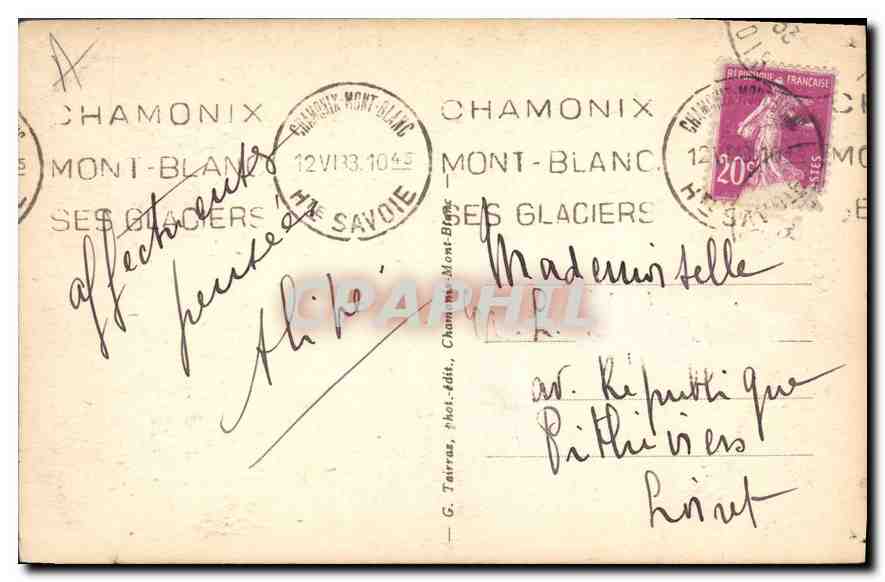 A
CHAMONIX
MONT-BLANC
SES GLACIERS
CHAMONIX-MONT-BLANC
12 VI 33. 10 45
Hte SAVOIE
CHAMONIX
MONT-BLANC
SES GLACIERS
RÉPUBLIQUE FRANÇAISE
20c
POSTES
affectueuses
pensées
Mademoiselle
av. République
Pithiviers
Loiret
— G. Tairraz, phot.-édit., Chamonix-Mont-Blanc —
CPAPHIL